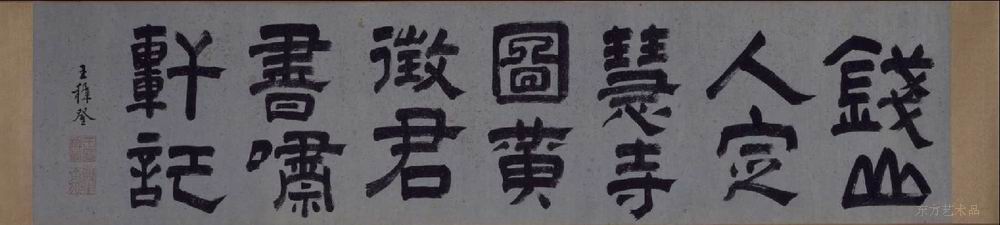 錢山
人定
慧寺
圖黄
徵君
書嘯
軒記
王穉登
东方艺术品